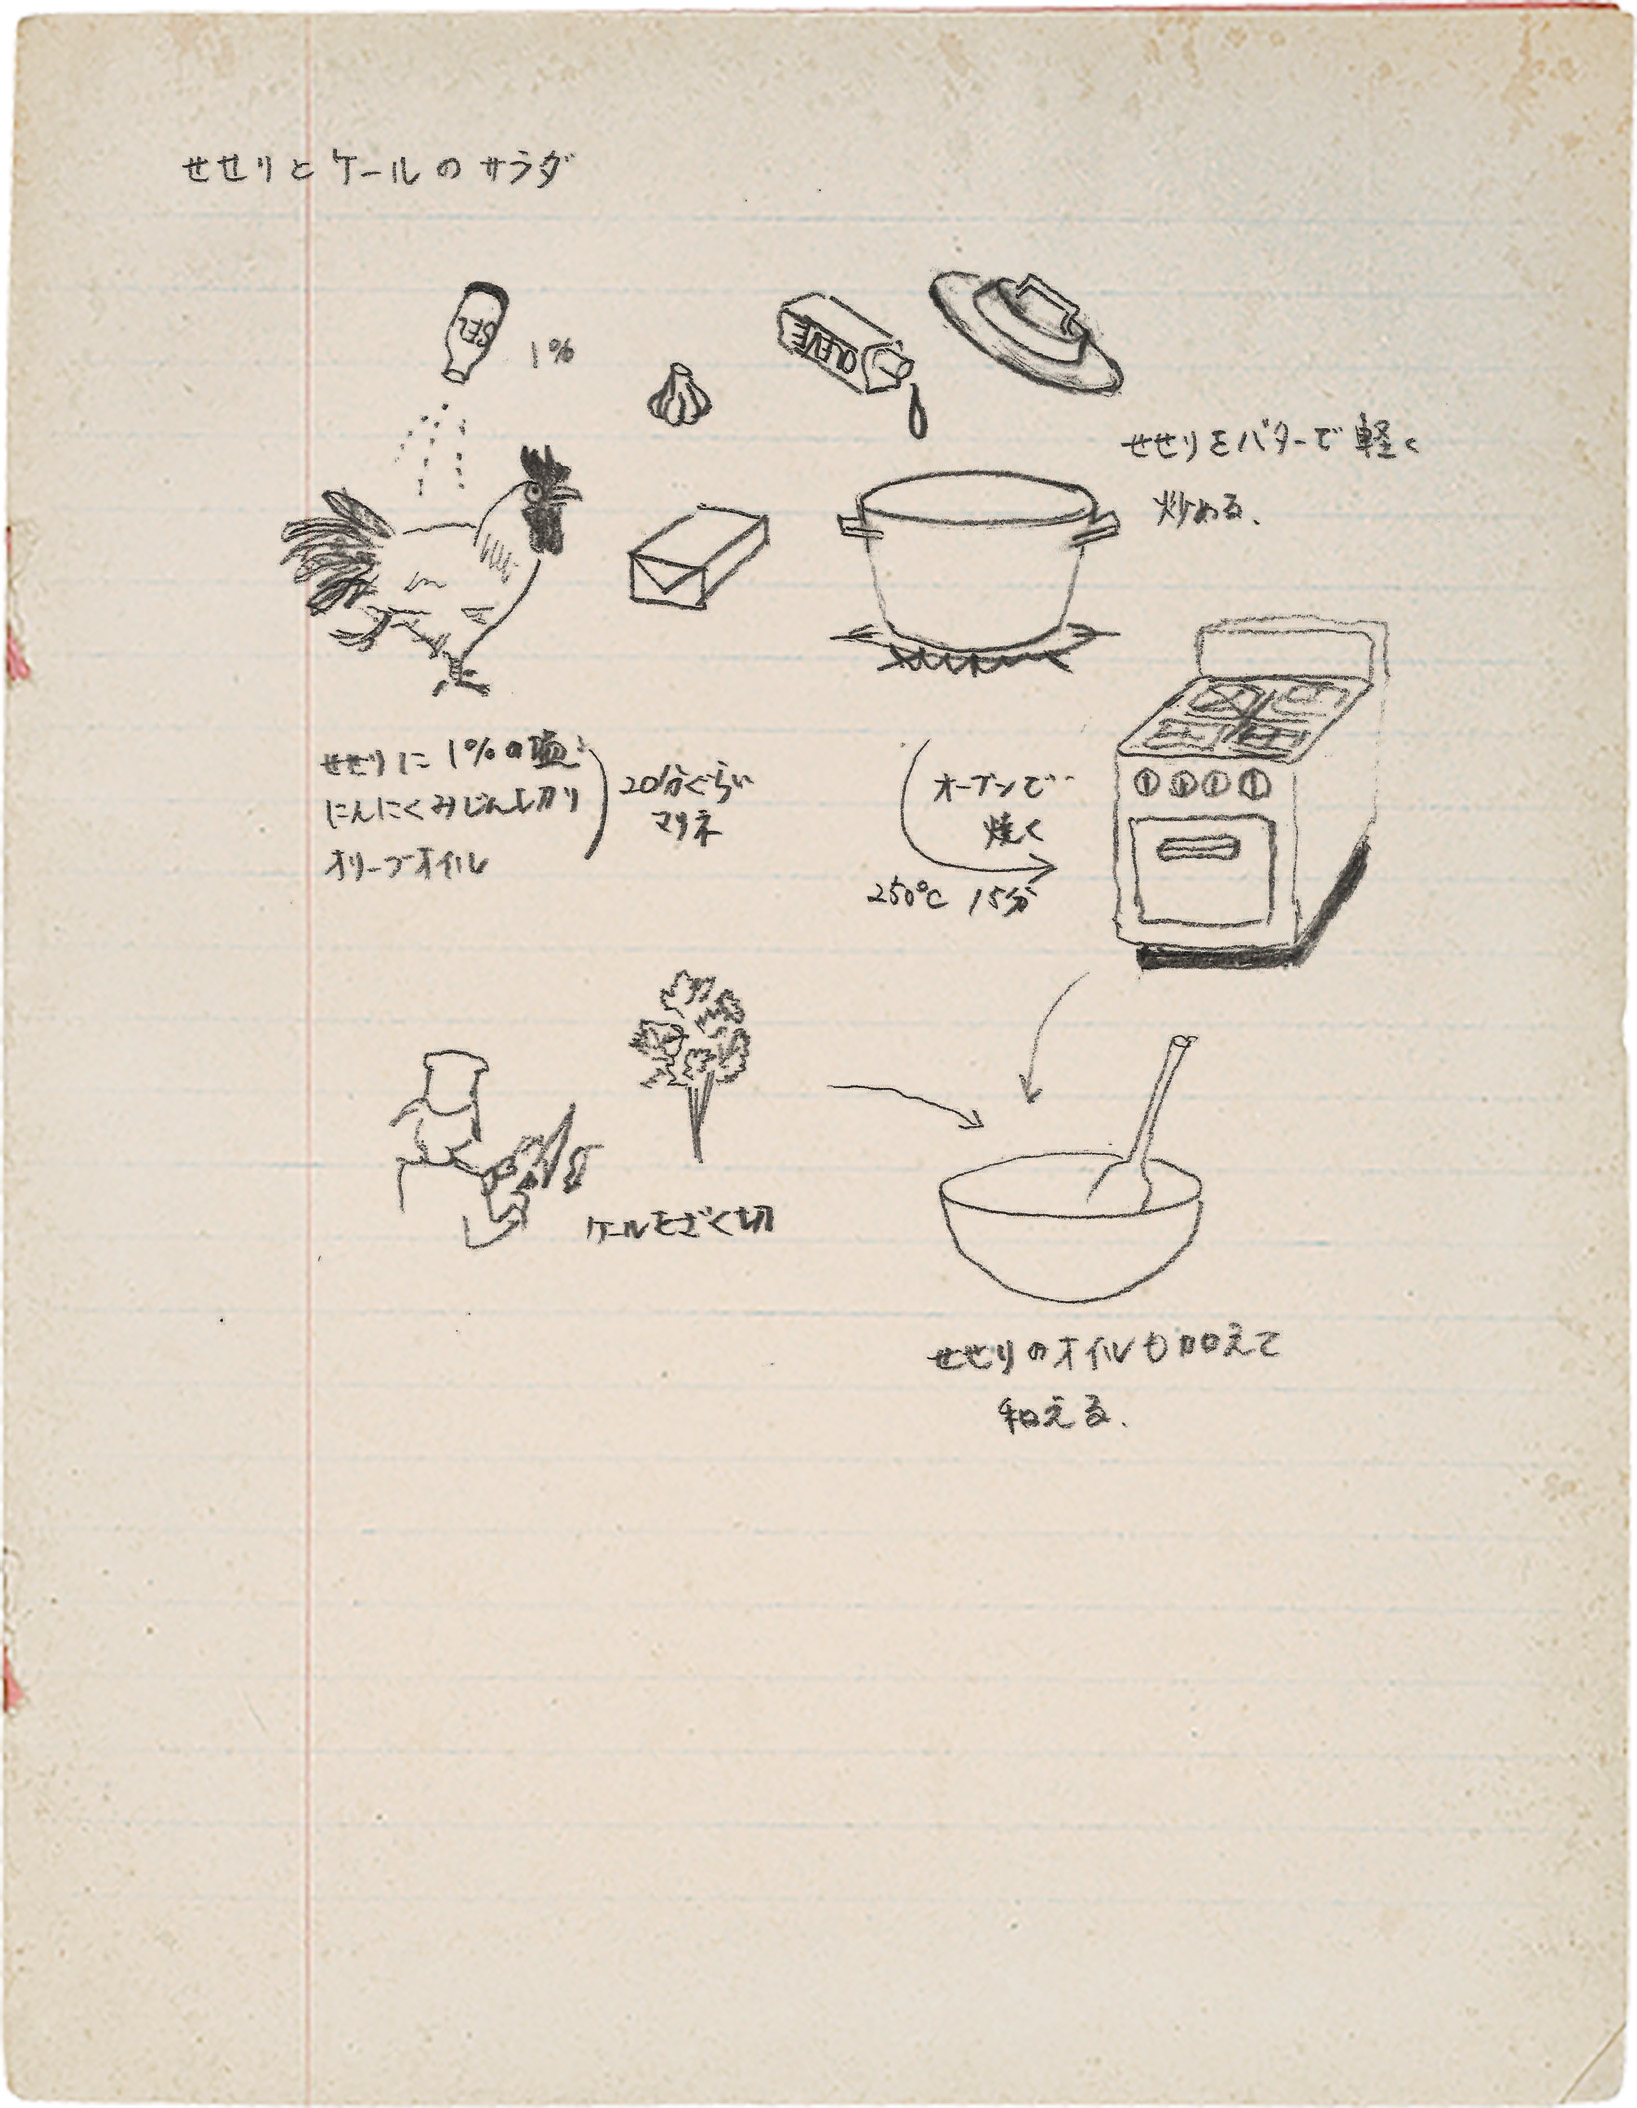 せせりとケールのサラダ
SEL
1%
OLIVE
せせりをバターで軽く
炒める.
せせりに1%の塩
にんにくみじん切り
オリーブオイル
20分ぐらい
マリネ
オーブンで
焼く
250℃ 15分
ケールをざく切
せせりのオイルも加えて
和える.